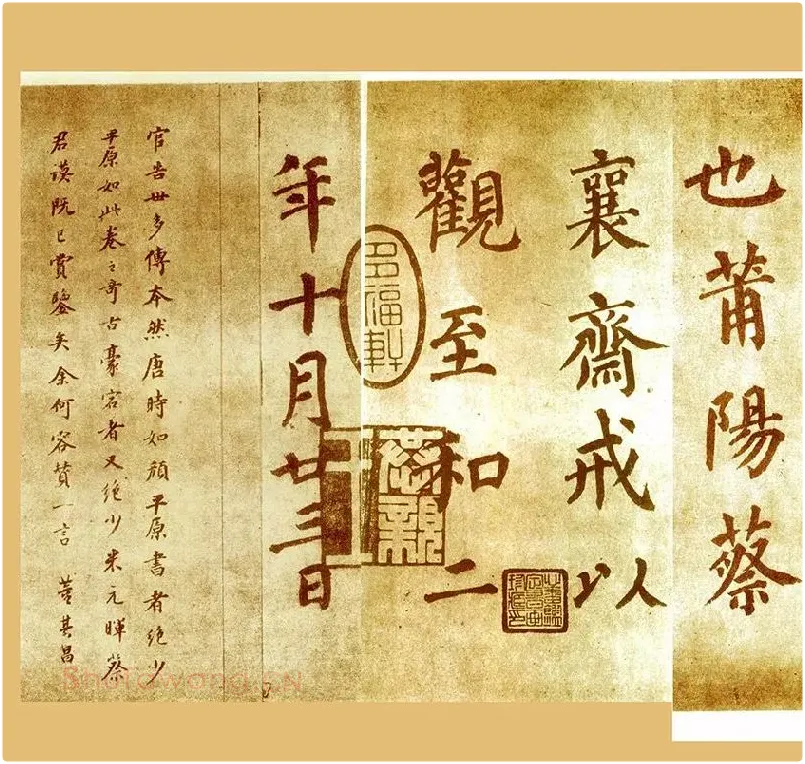 也莆陽蔡
襄齋戒以
觀至和二
年十月廿三日
多福軒
官告世多傳本然唐時如顏平原書者絕少
平原如此卷之奇古豪宕者又絕少米元暉蔡
君謨既已賞鑒矣余何容贊一言 董其昌